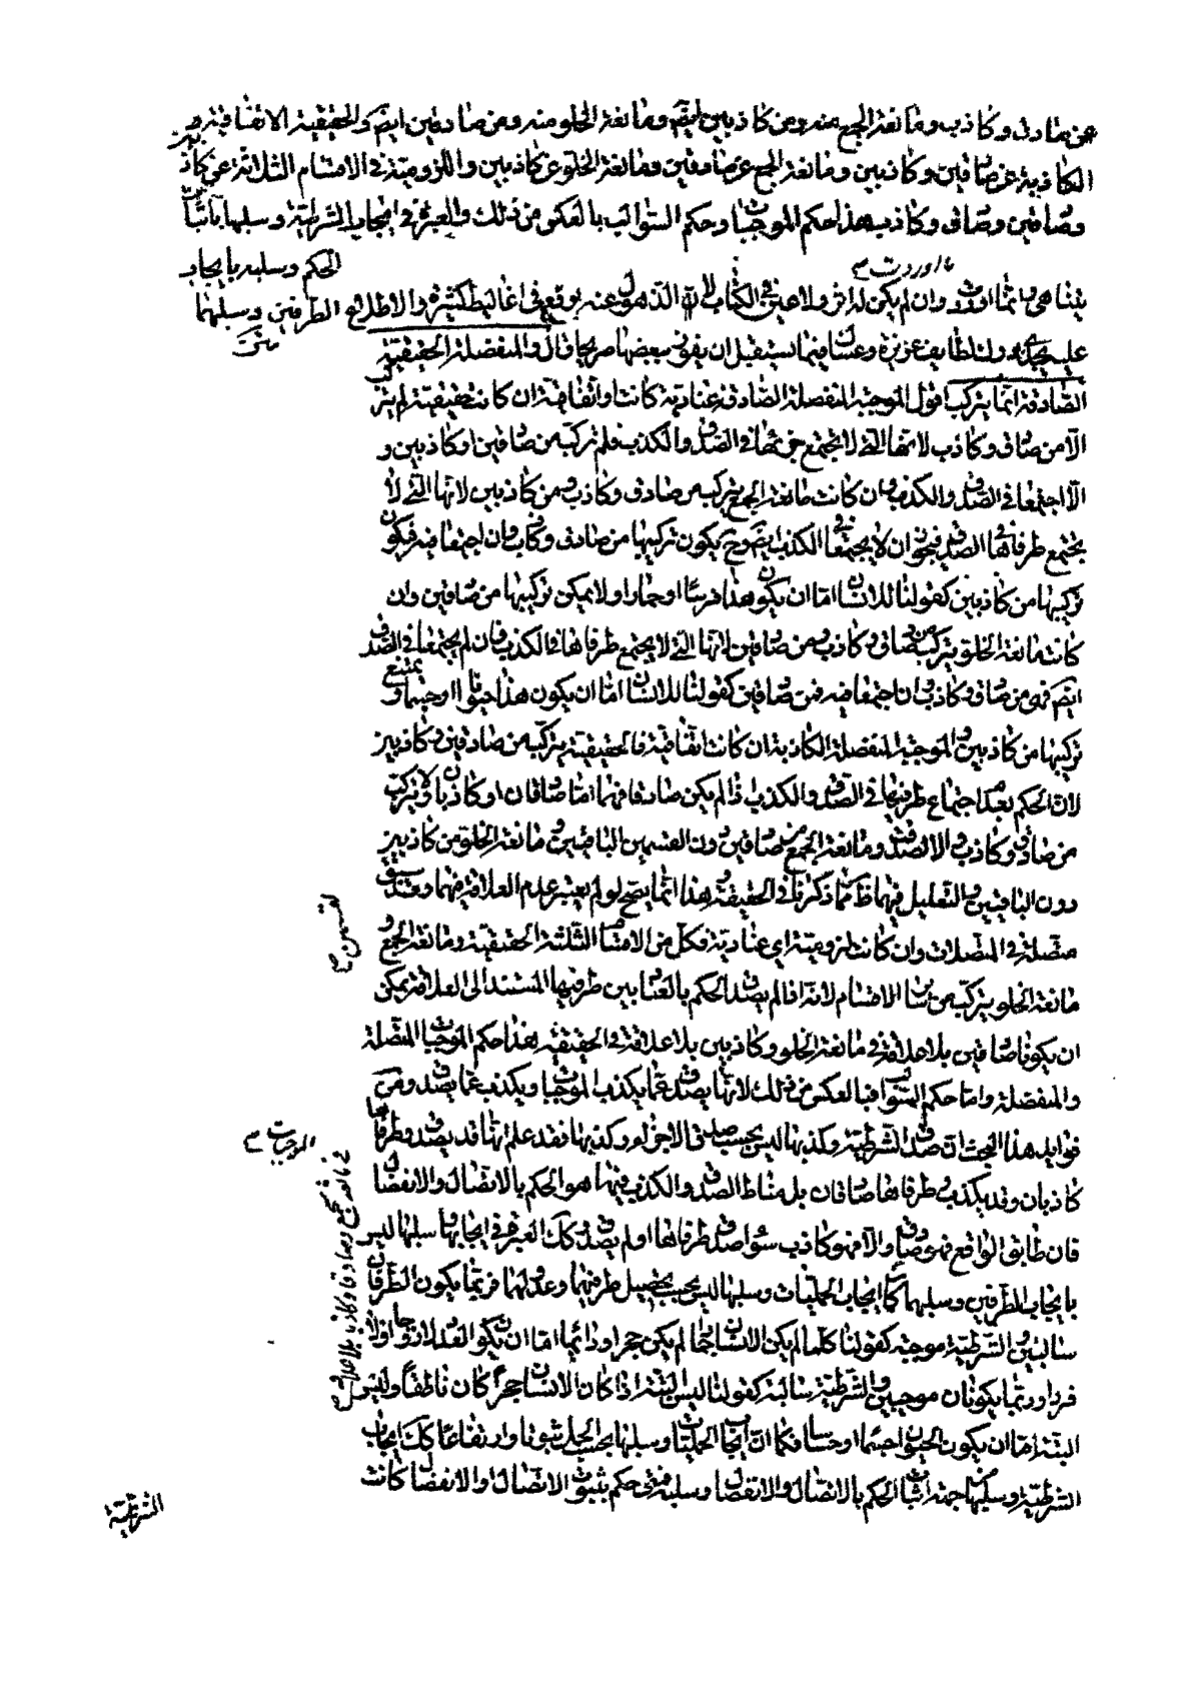 عن صادق وكاذب ومانعة الجمع منه ومن كاذبين ايضا ومانعة الخلو منه ومن صادقين ايضا والحقيقية الاتفاقية
الكاذبة عن صادقين وكاذبين ومانعة الجمع عن صادقين ومانعة الخلو عن كاذبين واللزومية في الاقسام الثلاثة عن كاذبين
وصادقين وصادق وكاذب هذا حكم الموجبات وحكم السوالب بالعكس من ذلك والعبرة في ايجاب الشرطية وسلبها باثبات
الحكم وسلبه بايجاب
ما اوردت
وان لم يكن له اثر ولا عين في الكتاب لان الذهول عنه يوقع في اغاليط كثيرة والاطلاع الطرفين وسلبهما
متن
عليه لطايف عزيزة وعساك فيما يستقبل ان يقرع بعضها صريحا قال والمنفصلة الحقيقية
الصادقة انما يتركب اقول الموجبة المنفصلة الصادقة عنادية كانت او اتفاقية ان كانت حقيقية لم يتركب
الا من صادق وكاذب لانها التي لا يجتمع جزءاها في الصدق والكذب فلم تركب من صادقين او كاذبين و
الا اجتمعا في الصدق والكذب وان كانت مانعة الجمع يتركب من صادق وكاذب ومن كاذبين لانها التي لا
يجتمع طرفاها في الصدق فيجوز ان لا يجتمعا في الكذب ايضا وح يكون تركيبها من صادق وكاذب وان اجتمعا فيه فيكون
تركيبها من كاذبين كقولنا للانسان اما ان يكون هذا فرسا او حمارا ولا يمكن تركيبها من صادقين وان
كانت مانعة الخلو يتركب من صادق وكاذب ومن صادقين لانها التي لا يجتمع طرفاها في الكذب فان لم يجتمعا في الصدق
ايضا فهي من صادق وكاذب وان اجتمعا فيه فمن صادقين كقولنا للانسان اما ان يكون هذا حيوانا او جسما ويمتنع
تركيبها من كاذبين والموجبة المنفصلة الكاذبة ان كانت اتفاقية فالحقيقية يتركب من صادقين وكاذبين
لان الحكم بعدم اجتماع طرفيها في الصدق والكذب اذا لم يكن صادقا فهما اما صادقان او كاذبان ولا يتركب
من صادق وكاذب والا لصدقت ومانعة الجمع من صادقين دون القسمين الباقيين ومانعة الخلو من كاذبين
دون الباقيين والتعليل فيهما ظ مما ذكرنا في الحقيقية وهذا انما يصح لو لم يعتبر عدم العلاقة فيهما وقد سبق
مفصلة في المتصلات وان كانت لزومية اي عنادية فكل من الاقسام الثلثة الحقيقية ومانعة الجمع و
مانعة الخلو يتركب من ساير الاقسام لانه اذا لم يصدق الحكم بالعناد بين طرفيها المستند الى العلاقة يمكن
ان يكونا صادقين بلا علاقة في مانعة الخلو وكاذبين بلا علاقة في الحقيقية هذا حكم الموجبات المتصلة
والمنفصلة واما حكم السوالب فبالعكس من ذلك لانها يصدق عما يكذب الموجبات ويكذب عما يصدق ومن
الموجبات
فوايد هذا البحث ان صدق الشرطية وكذبها ليس بحسب صدق الاجزاء وكذبها فقد علم انها قد يصدق وطرفاها
كاذبان وقد يكذب وطرفاها صادقان بل مناط الصدق والكذب فيها هو الحكم بالاتصال والانفصال
فان طابق الواقع فهو صادق والا فهو كاذب سواء صدق طرفاها او لم يصدق كك العبرة في ايجابها وسلبها ليس
بايجاب الطرفين وسلبهما كما ايجاب الحمليات وسلبها ليس بحسب تحصيل طرفيها وعدولهما فربما يكون الطرفان
سالبين والشرطية موجبة كقولنا كلما لم يكن الانسان جمادا لم يكن حجرا ودائما اما ان يكون العدد لا زوجا او لا
فردا وربما يكونان موجبين والشرطية سالبة كقولنا ليس البتة اذا كان الانسان حجرا كان ناطقا وليس
البتة اما ان يكون الحيوان جسما او حساسا فكما ان ايجاب الحمليات وسلبها بحسب الحمل ثبوتا وارتفاعا كك ايجاب
الشرطية وسلبها من جهة اثبات الحكم بالاتصال والانفصال وسلبه فمتى حكم بثبوت الاتصال او الانفصال كانت
الشرطية